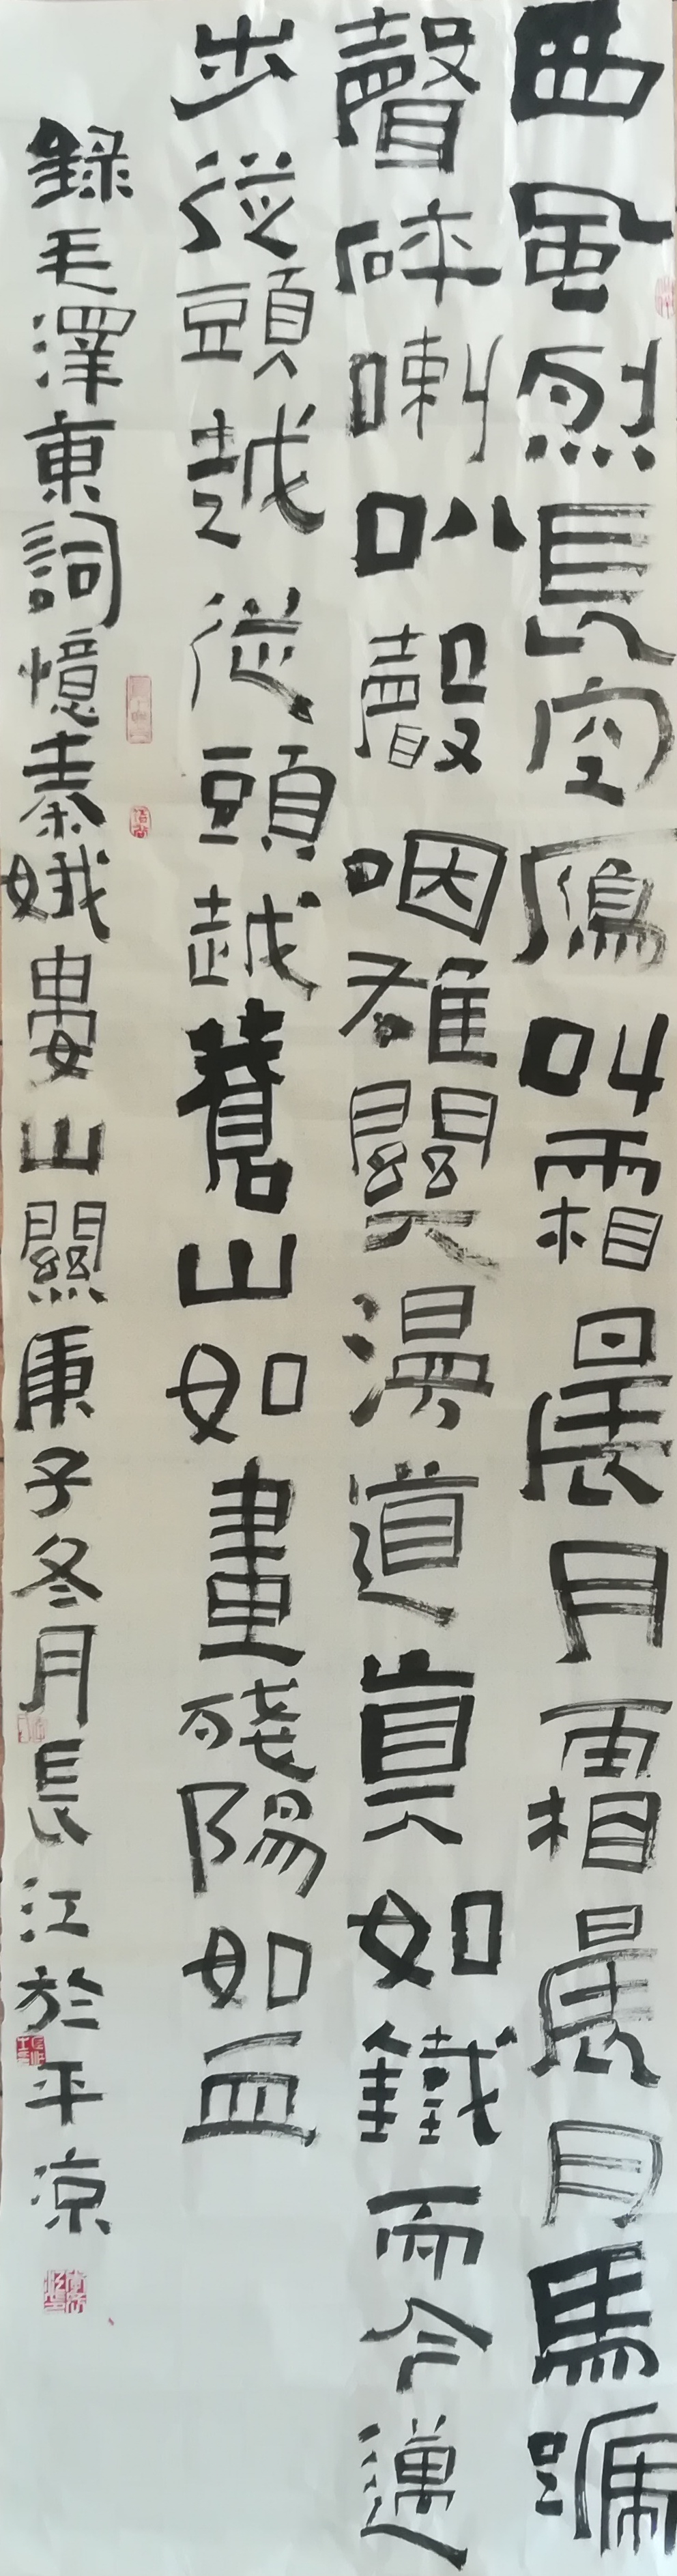 西風烈長空鴈叫霜晨月霜晨月馬蹄
聲碎喇叭聲咽雄關漫道真如鐵而今邁
步從頭越從頭越蒼山如畫殘陽如血
錄毛澤東詞憶秦娥婁山關庚子冬月長江於平涼